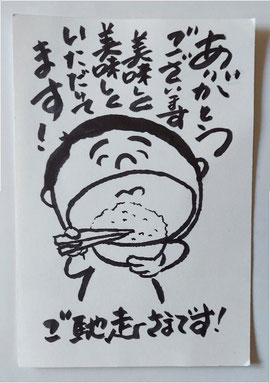 ありがとう
ございます
美味しく
美味しく
いただいて
ます!
ご馳走さまです!